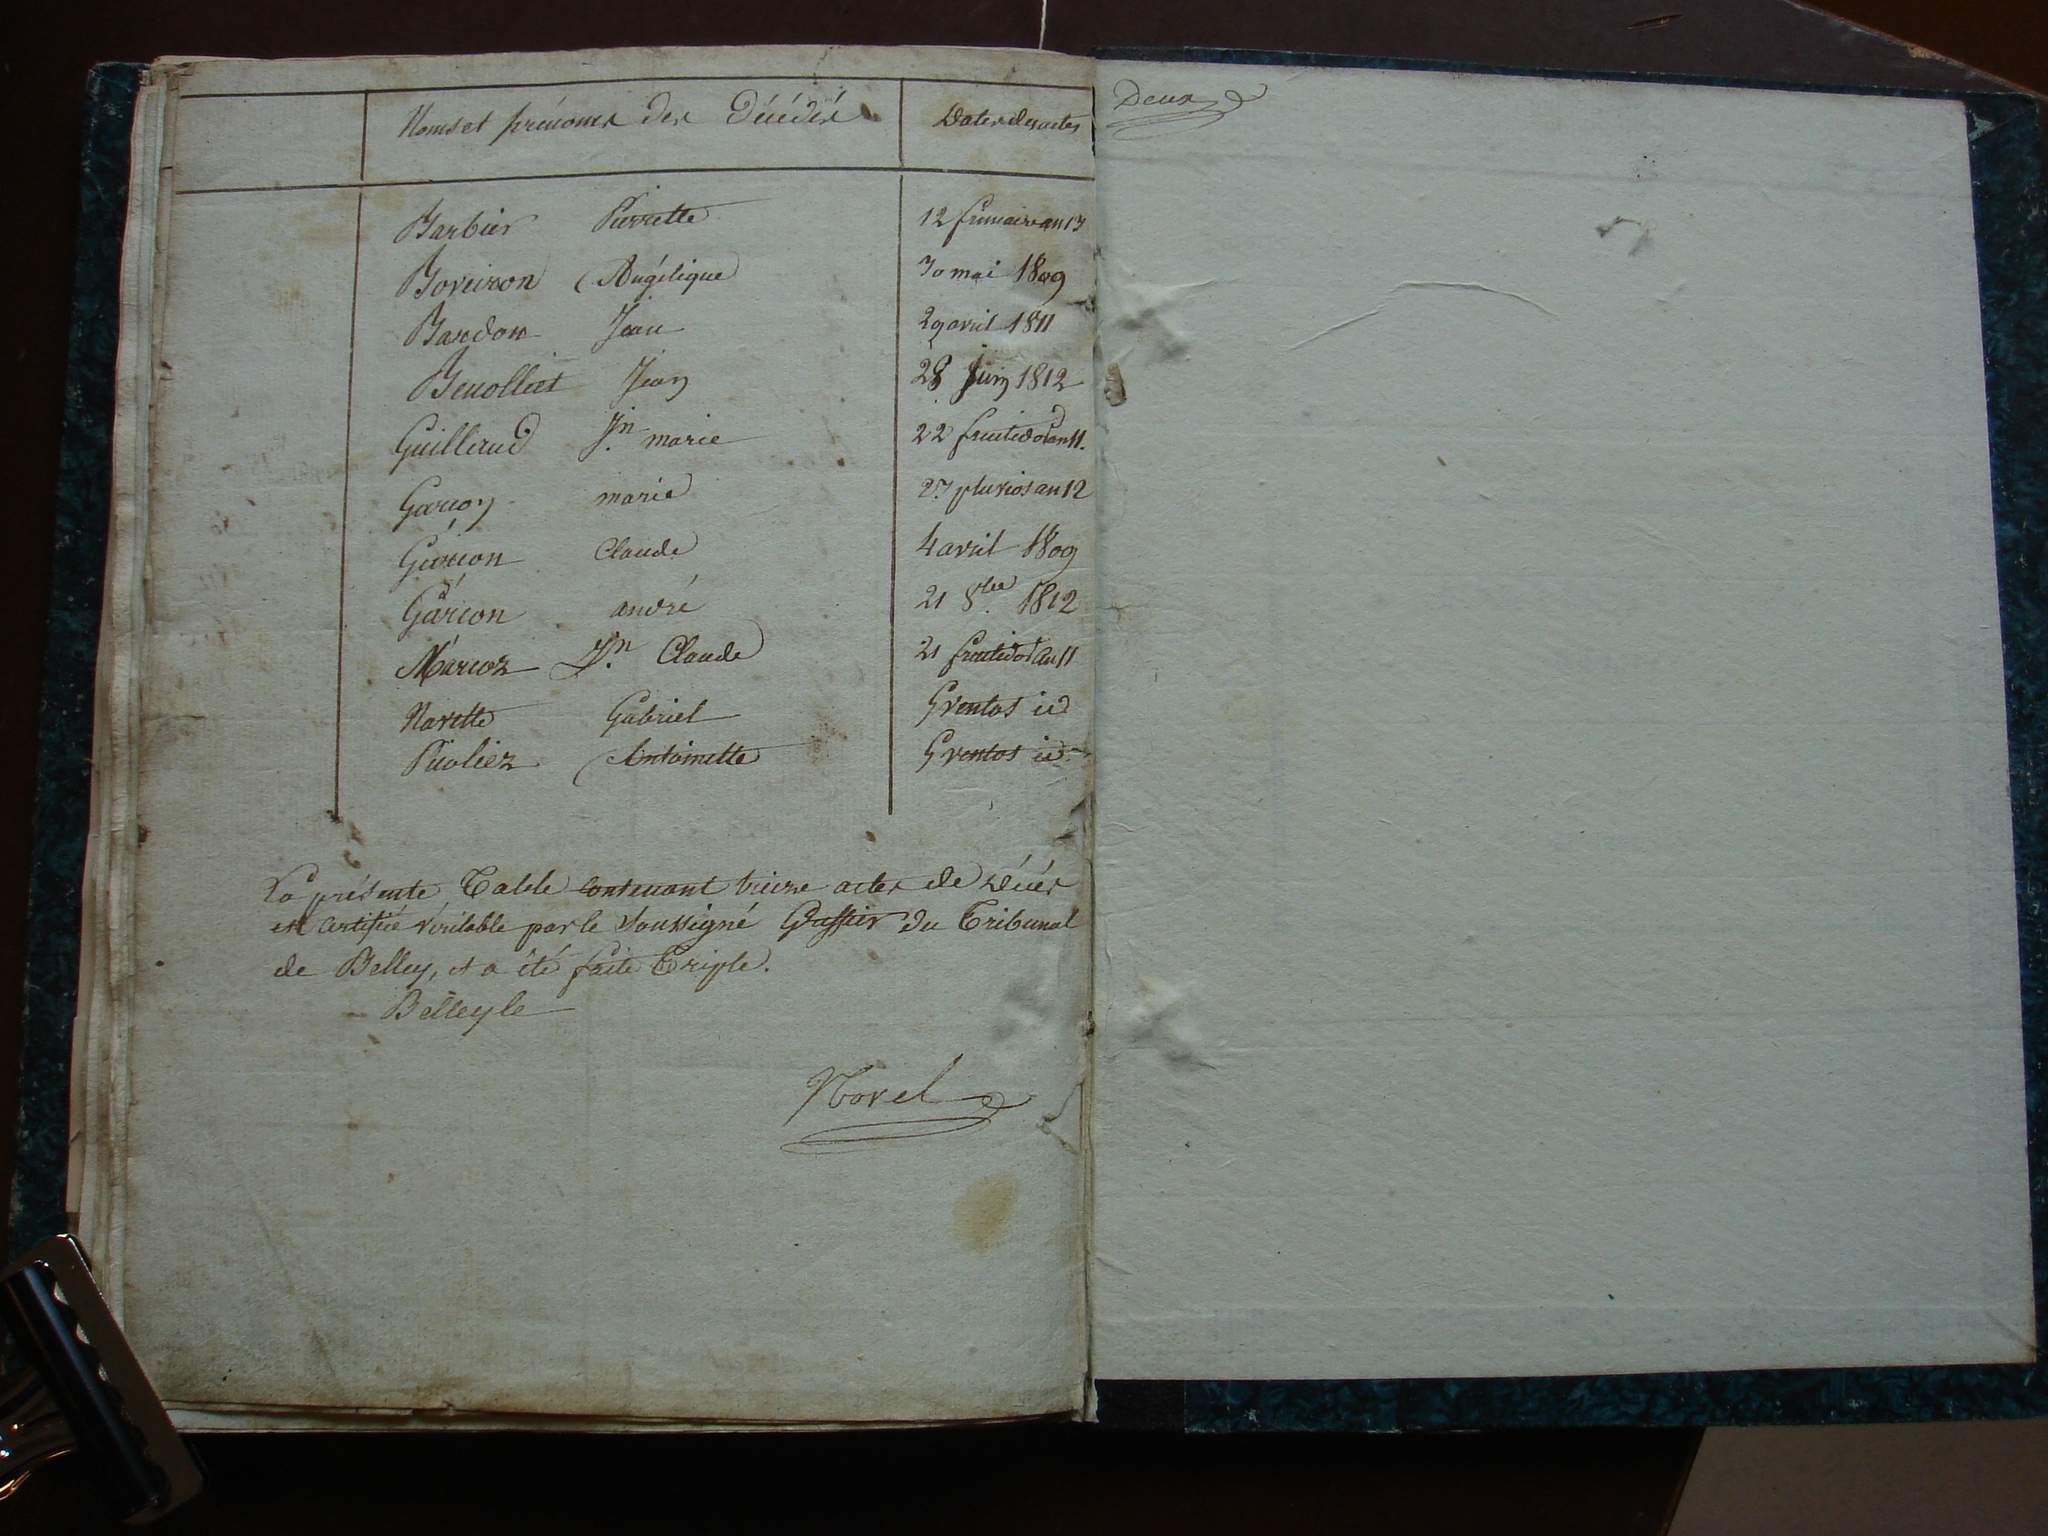 Noms et prénoms des Décédés Dates des actes
Deux
Barbier Pierrette 12 frimaire an 13
Boveiron Angélique 30 mai 1809
Bardon Jean 29 avril 1811
Benolliet Jean 28 juin 1812
Guillerud Jn. marie 22 fructidor an 11.
Garcon marie 27 pluvios an 12
Garcon Claude 4 avril 1809
Garcon andré 21 8bre 1812
Marcoz Jn. Claude 21 fructidor an 11
Navette Gabriel 9 ventos id
Picoliez Antoinette 9 ventos id
La présente Table contenant treize actes de Décés
est certifiée véritable par le soussigné Greffier du Tribunal
de Belley, et a été faite Triple.
Belley le
Novel